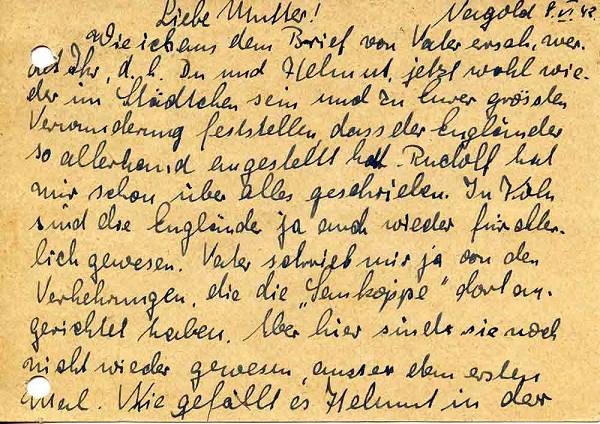 Liebe Mutter! Nagold 8.VI.42
Wie ich aus dem Brief von Vater ersah, wer-
det Ihr, d.h. Du und Helmut, jetzt wohl wie-
der im Städtchen sein und zu Eurer grössten
Verwunderung feststellen, dass der Engländer
so allerhand angestellt hat. Rudolf hat
mir schon über alles geschrieben. In Köln
sind die Engländer ja auch wieder fürchter-
lich gewesen. Vater schrieb mir ja von den
Verheerungen, die die „ " dort an-
gerichtet haben. Aber hier sind sie noch
nicht wieder gewesen, ausser dem ersten
Mal. Wie gefällt es Helmut in der